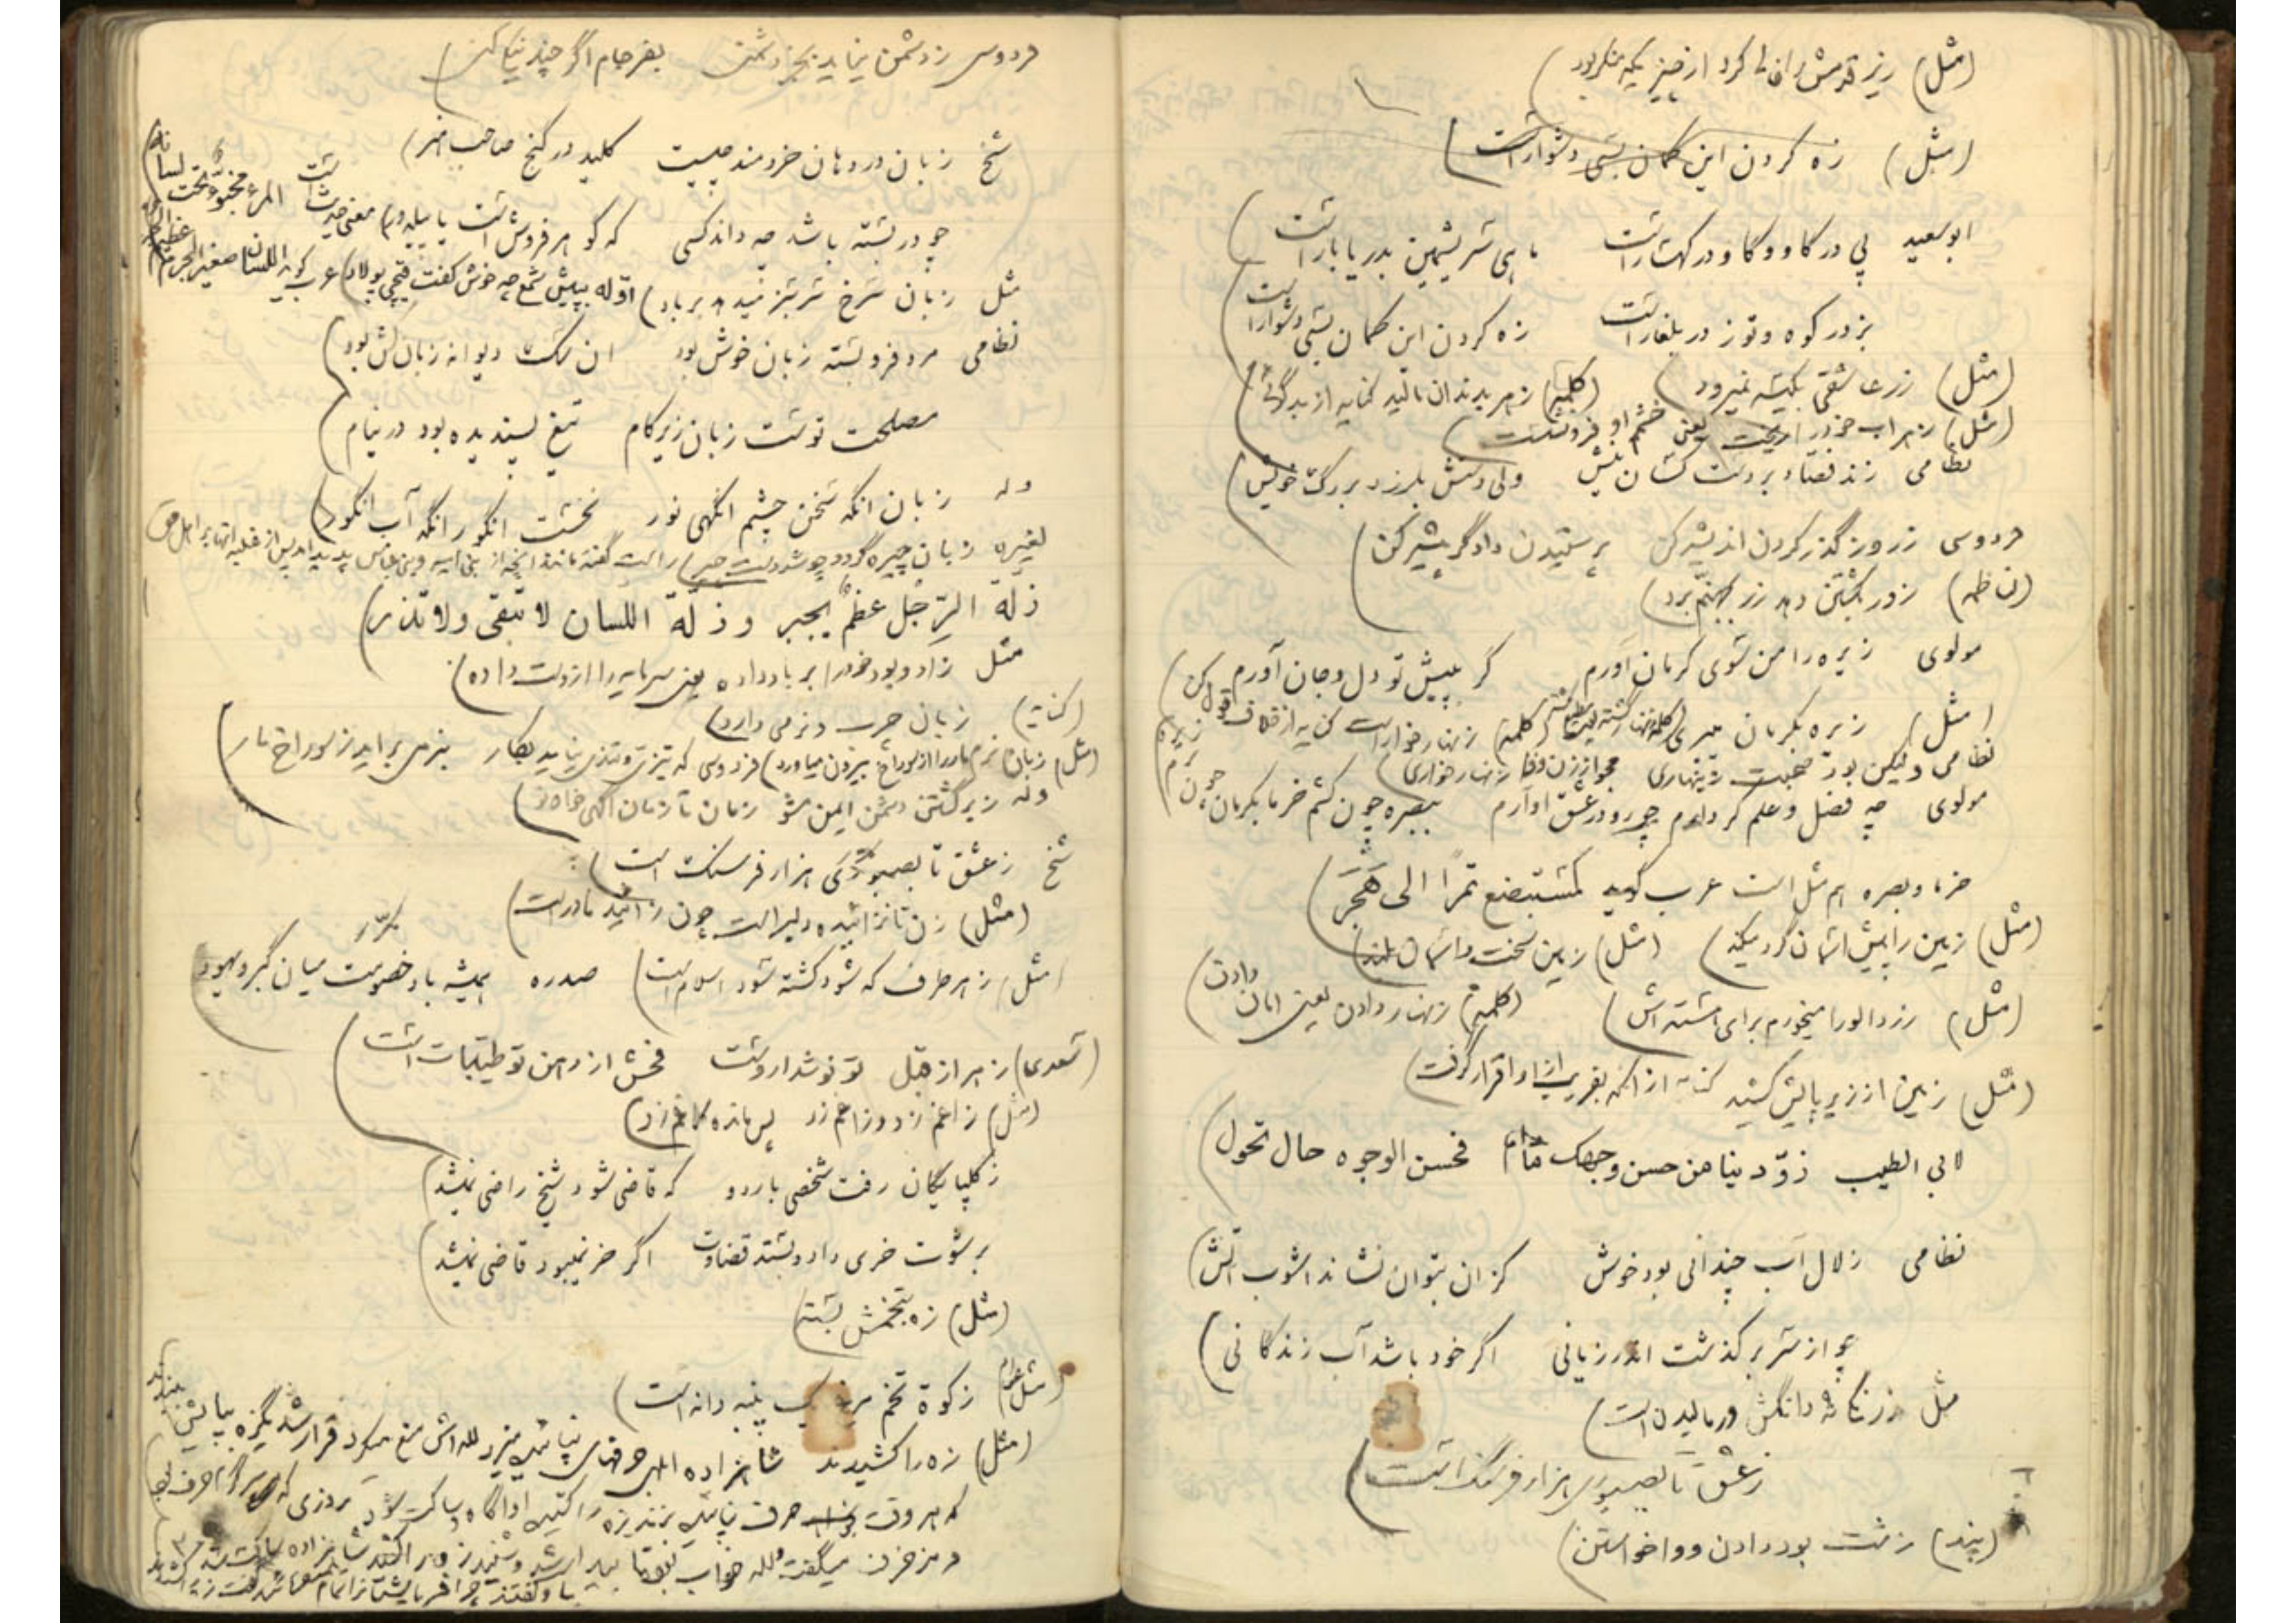 (مثل) زیر قدمش را خالی کرد از چیزیکه منکر بود
(مثل) زه کردن این کمان بسی دشوار است
ابوسعید پی در گاو و گاو در کهسار است ماهی سریشمین بدریا بار است
بز در کوه و توز در بلغار است زه کردن این کمان بسی دشوار است
(مثل) زر عاشقی بکیسه نمیرود (کلمه) زهر بدندان مالید کنایه از بدگوئی
(مثل) زهر آب خود را ریخت یعنی خشم او فرو نشست
نظامی زند فصاد بر دست کسان نیش ولی دستش بلرزد بر رگ خویش
فردوسی ز روز گذر کردن اندیشه کن پرستیدن دادگر پیشه کن
زور بکشتن دهد زر بجهنم برد
مولوی زیره را من سوی کرمان آورم گر به پیش تو دل و جان آورم
(مثل) زیره بکرمان میبری (کلمه) زنهار خوار است کنایه از خلاف قول کن
نظامی ولیکن بود صحبت زینهاری مجو از زن وفا زنهار خواری
مولوی چه فضل و علم گرد آرم چو رو در عشق او آرم ببصره چون کشم خرما بکرمان چون برم زیره
خرما و بصره هم مثل است عرب گوید کمستبضع تمرا الی هجر
(مثل) زمین را به پیش آسمان گرد میکند (مثل) زمین سخت و آسمان بلند
(مثل) زردآلو را میخورم برای هسته اش (کلمه) زنهار دادن یعنی امان دادن
(مثل) زمین از زیر پایش کشید کنایه از آنکه بفریب از او اقرار گرفت
لابی الطیب زودینا من حسن وجهک مادام فحسن الوجوه حال تحول
نظامی زلال آب چندانی بود خوش کزان بتوان نشاند آشوب آتش
چو از سر بر گذشت اندر زیانی اگر خود باشد آب زندگانی
مثل دانگش در مالیدن است
ز عشق تا بصبوری هزار فرسنگ است
(پند) زشت بود دادن و واخواستن
فردوسی ز دشمن نیاید بجز دشمنی بفرجام اگر چند نیکی کنی
شیخ زبان در دهان خردمند چیست کلید در گنج صاحب هنر
چو در بسته باشد چه داند کسی که گوهر فروش است یا پیله ور معنی حدیث است المرء مخبو تحت لسانه
مثل زبان سرخ سر سبز میدهد بر باد اوله به پیش شمع چه خوش گفت قیچی پولاد عرب گوید اللسان صغیر الجرم عظیم الجرم
نظامی مرد فرو بسته زبان خوش بود آن سگ دیوانه زبان کش بود
مصلحت تست زبان زیر کام تیغ پسندیده بود در نیام
وله زبان آنگه سخن چشم آنگهی نور نخست انگور آنگه آب انگور
لغیره زبان چیره گردد چو شد دست چیر راست گفته مانند آنچه از بنی امیه و بنی عباس پدید آمد پس از غلبه آنها بر اهل حق
زلة الرجل عظم یجبر و زلة اللسان لا تبقی ولا تذر
مثل زاد و بود خود را بر باد داده یعنی سرمایه را از دست داده
(کنایه) زبان چرب و نرمی دارد
(مثل) زبان نرم مار را از سوراخ بیرون میاورد فردوسی که تیزی و تندی نیاید بکار بنرمی بر آید ز سوراخ مار
وله ز برگشتن دشمن ایمن مشو زمان تا زمان آگهی خواه نو
شیخ ز عشق تا بصبوری هزار فرسنگ است
(مثل) زن تا نزائیده دلبر است چون زائید مادر است
(مثل) ز هر طرف که شود کشته سود اسلام است صدره همیشه باد خصومت میان گبر و یهود
(سعدی) زهر از قبل تو نوشداروست فحش از دهن تو طیبات است
(مثل) زاغم زد و زاغم زد پس مانده کلاغم زد
ز گلپایگان رفت شخصی باردو که قاضی شود شیخ راضی نمیشد
برشوت خری داد و بستد قضاوت اگر خر نمیبود قاضی نمیشد
(مثل) زه بتخمش بسته
(مثل) زکوة تخم مرغ یک پنبه دانه است
(مثل) زه را کشیدند شاهزاده حرفهای بی لله اش منع میکرد قرار شد بپایش بندند
که هر وقت حرف بزند زه را کشید او آگاه و ساکت شود روزی که سرگرم حرف
مزخرف میگفت لله خواب بود تا بیدار شد